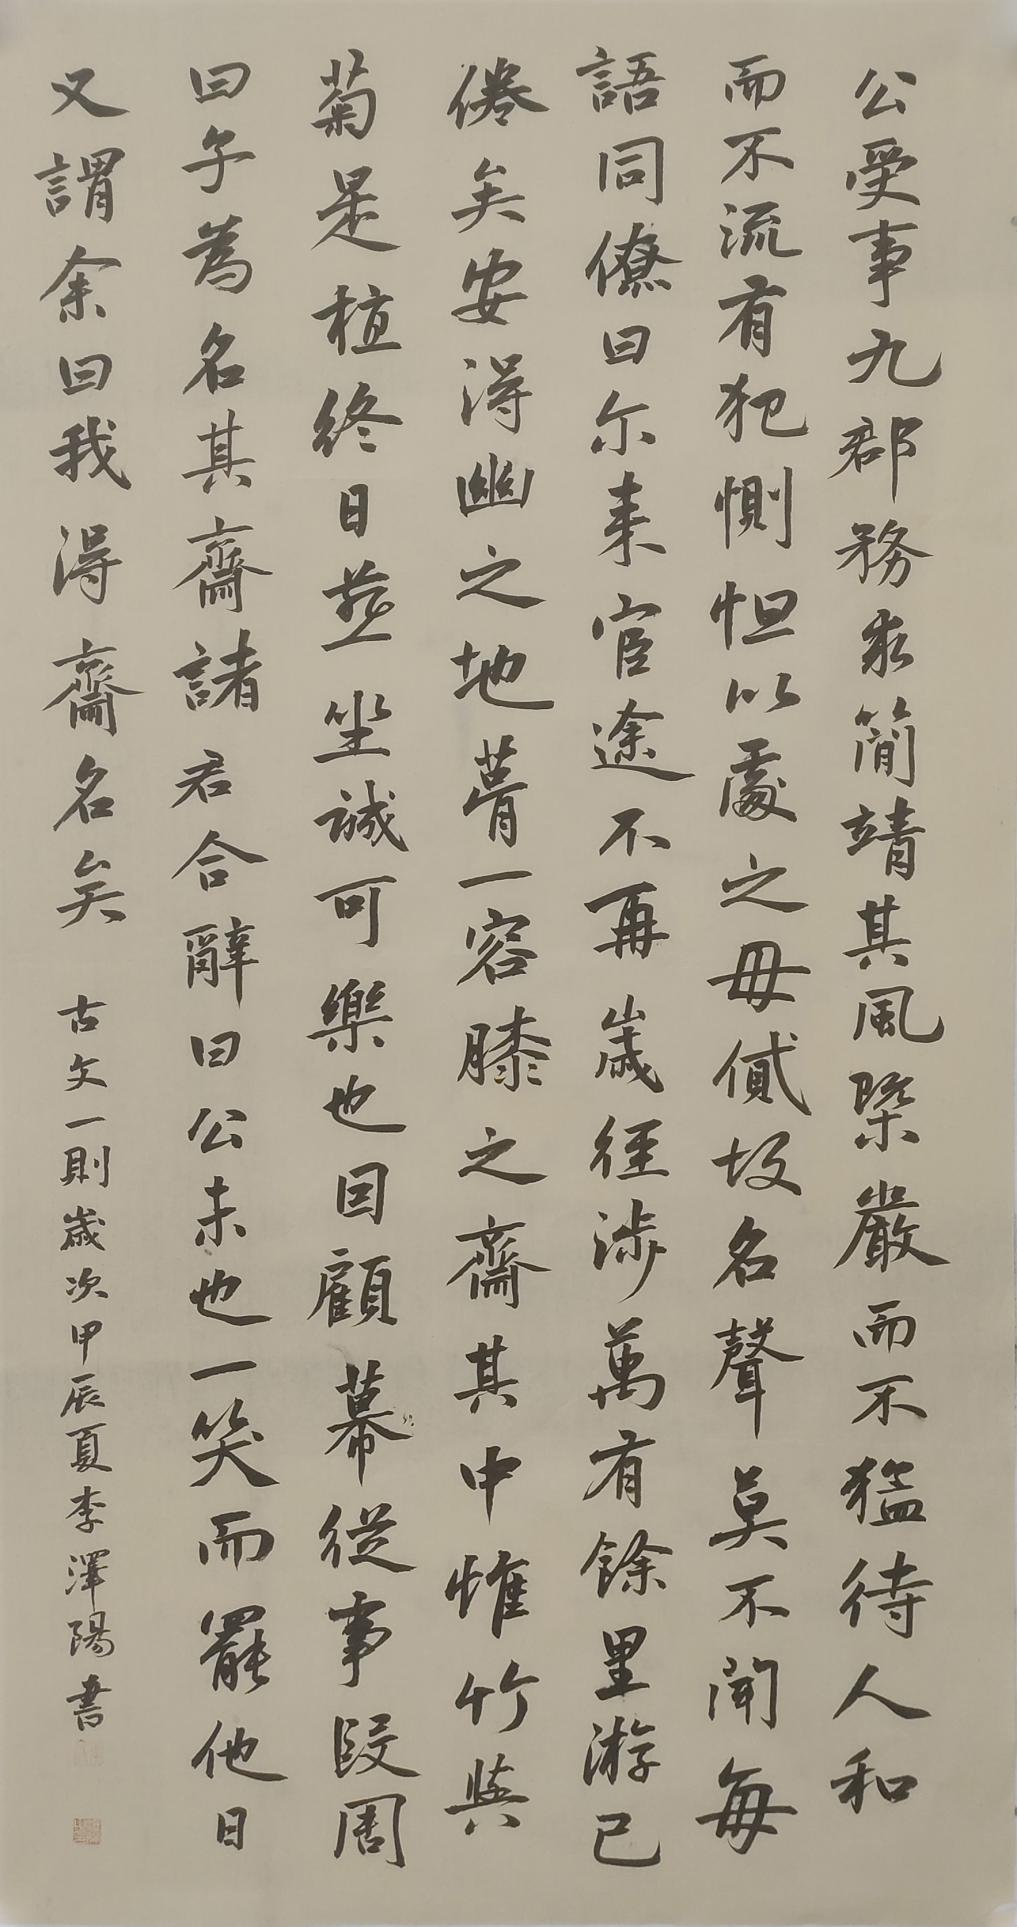 公受事九郡務求簡靖其風槩嚴而不猛待人和
而不流有犯惻怛以處之毋傎故名聲莫不聞每
語同僚曰尔来官途不再歲徑涉萬有餘里游已
倦矣安得幽之地菁一容膝之齋其中惟竹與
菊是植終日並坐誠可樂也回顧幕從事段周
曰子為名其齋諸君合辭曰公未也一笑而罷他日
又謂余曰我得齋名矣 古文一則歲次甲辰夏李澤陽書